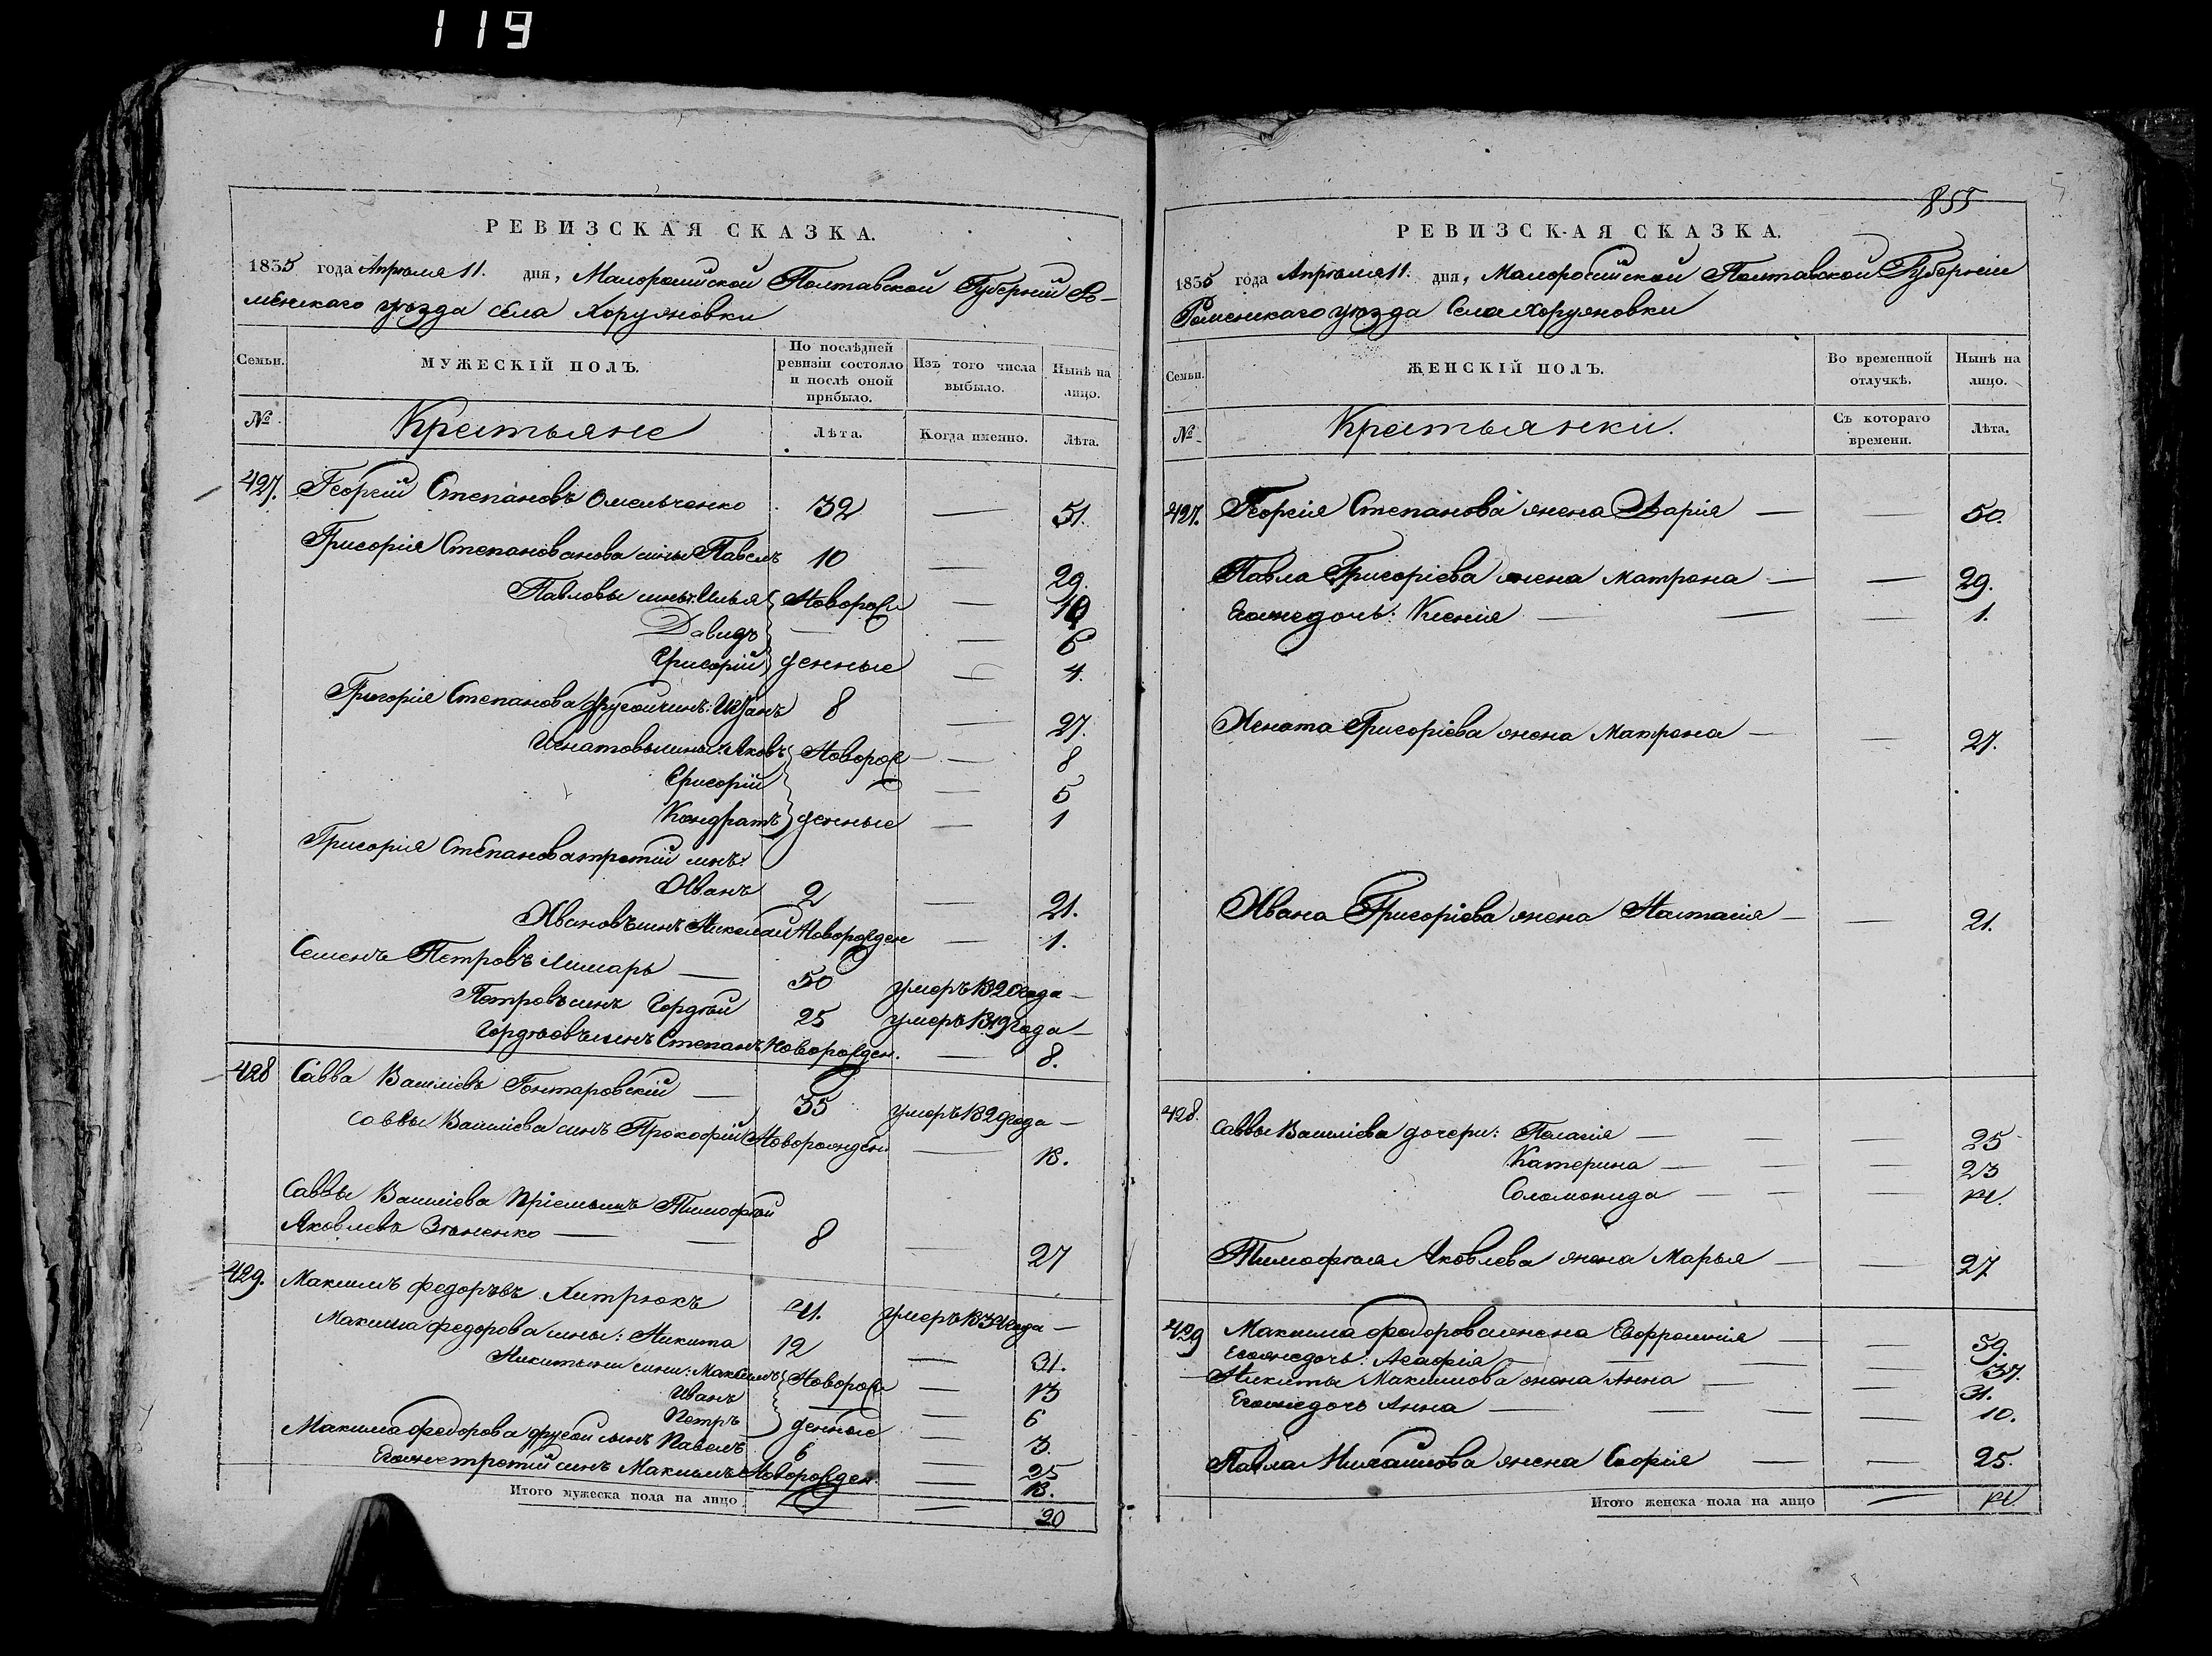 119
РЕВИЗСКАЯ СКАЗКА.
1835 года Апреля 11. дня, Малоросийской Полтавской Губернии Ро-
менскаго уезда села Хоружовки
Семьи.
МУЖЕСКІЙ ПОЛЪ.
По послѣдней ревизіи состояло и послѣ оной прибыло.
Изъ того числа выбыло.
Нынѣ на лицо.
№
Крестьяне
Лѣта.
Когда именно.
Лѣта.
427. Георгій Степановъ Омельченко 32 — 51.
Григорія Степанова сины Павелъ 10 — 29.
Павловы сины: Илья Новорож 10
Давидъ — — 6
Григорій денные — 4.
Григорія Степанова другой синъ: Игнатъ 8 — 27.
Игнатовы сины: Яковъ Новорож — 8
Григорій — 5
Кондратъ денные — 1
Григорія Степанова третій синъ:
Иванъ 2 — 21.
Ивановъ синъ Николай Новорожден — 1.
Семенъ Петровъ Лимарь — 50 умеръ 1820 года —
Петровъ синъ Гордѣй 25 умеръ 1819 года —
Гордѣевъ синъ Степанъ Новорожден. — 8.
428 Савва Василіевъ Гонтаровскій — 35 умеръ 1829 года —
Саввы Василіева синъ Прокофій Новорожден — 18.
Саввы Василіева пріемышъ Тимофѣй
Яковлевъ — — 8 — 27
429. Максимъ Федоровъ Хитрюкъ 41. умеръ 1834 года —
Максима Федорова сины: Никита 12 — 31.
Никитины сины: Максимъ Новорож — 13
Иванъ — 6
Петръ денные — 3.
Максима Федорова другой сынъ Павелъ 6 — 25
Егоже третій синъ Максимъ Новорожден — 18.
Итого мужеска пола на лицо — 20
855
РЕВИЗСКАЯ СКАЗКА.
1835 года Апреля 11. дня, Малоросийской Полтавской Губернии
Роменскаго уезда Села Хоружовки
Семьи.
ЖЕНСКІЙ ПОЛЪ.
Во временной отлучкѣ.
Нынѣ на лицо.
№
Крестьянки.
Съ котораго времени.
Лѣта.
427. Георгія Степанова жена Дарія — — 50.
Павла Григоріева жена Матрона — — 29.
Егоже дочь: Ксенія — — 1.
Игната Григоріева жена Матрона — — 27.
Ивана Григоріева жена Настасія — — 21.
428. Саввы Василіева дочери: Пелагія — — — 25
Катерина — — — 23
Соломонида — — — 
Тимофѣя Яковлева жена Марья — — 27
429 Максима Федорова жена Евфросинія — — 59.
Егоже дочь: Агафія — — — 37.
Никиты Максимова жена Анна — — 31.
Егоже дочь Анна — — — — 10.
Павла Максимова жена Софія — — — 25.
Итого женска пола на лицо —